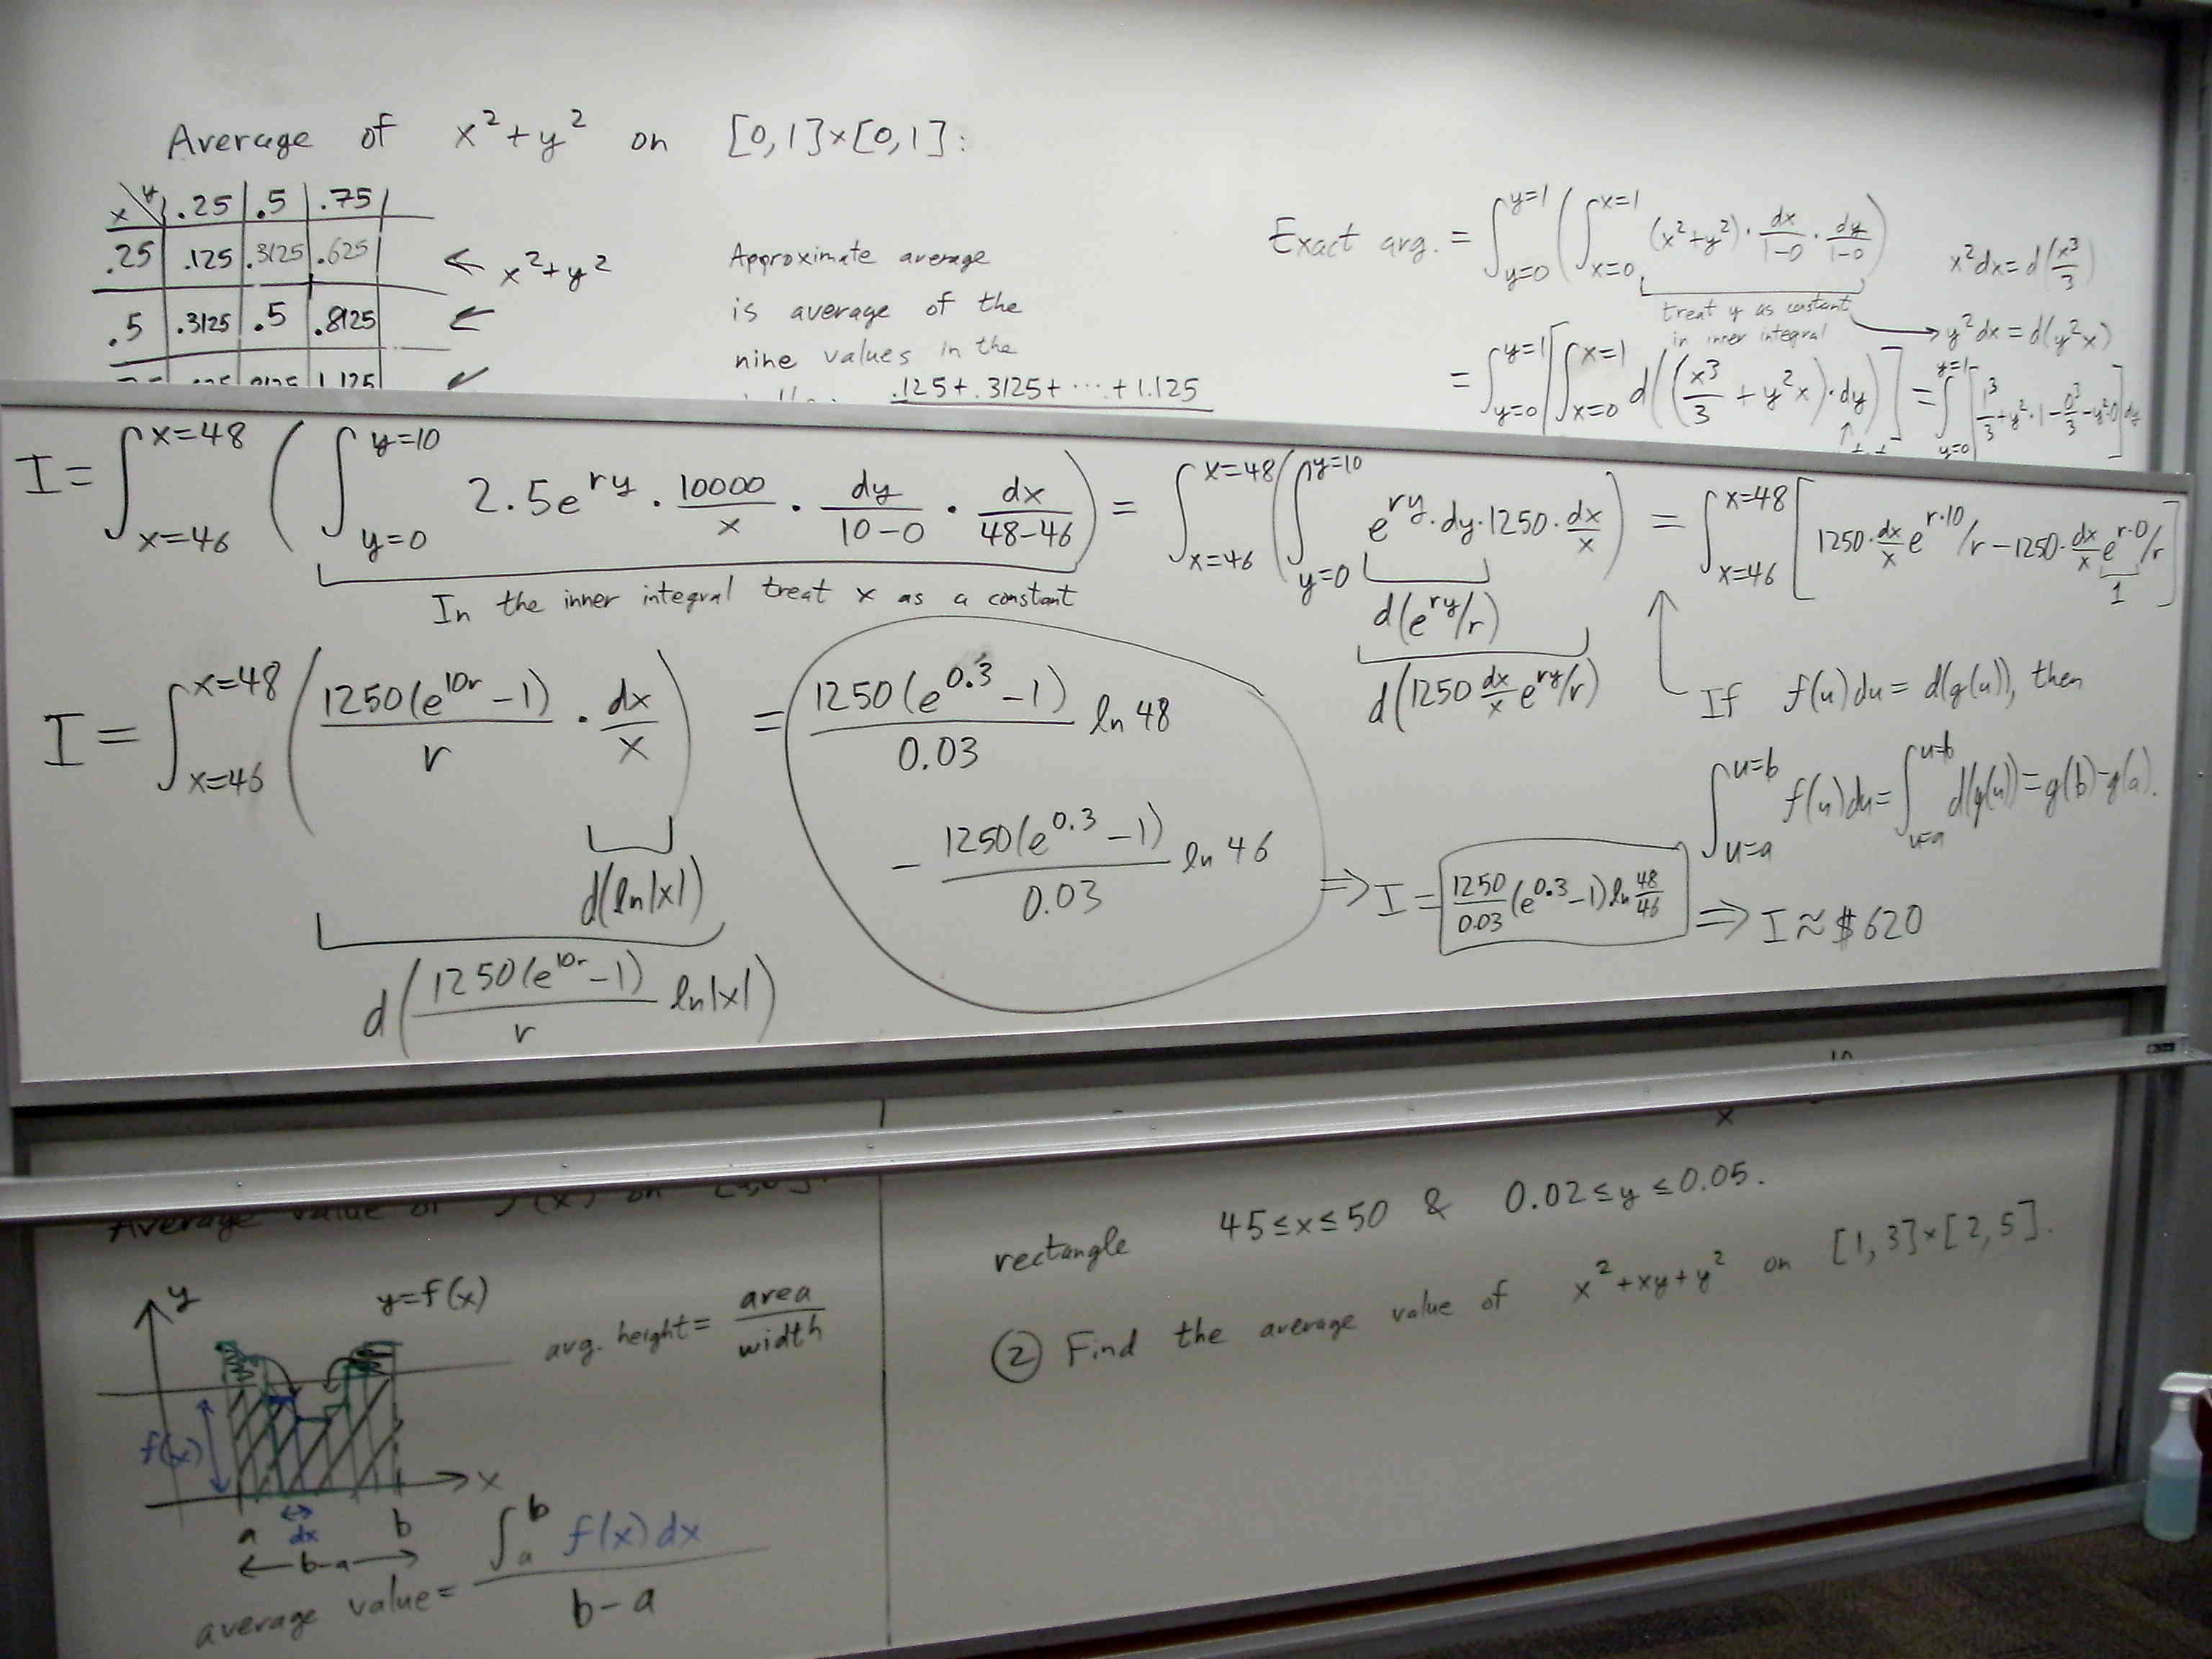 Average of x² + y² on [0,1]×[0,1]:
x\y .25 .5 .75
.25 .125 .3125 .625 ← x² + y²
.5 .3125 .5 .8125 ←
1.125
Approximate average
is average of the
nine values in the
.125 + .3125 + ⋯ + 1.125
Exact avg. = ∫_{y=0}^{y=1} (∫_{x=0}^{x=1} (x²+y²)·dx/(1-0)·dy/(1-0))
treat y as constant
in inner integral
x²dx = d(x³/3)
y²dx = d(y²x)
= ∫_{y=0}^{y=1} [∫_{x=0}^{x=1} d((x³/3 + y²x)·dy)] = ∫_{y=0}^{y=1} [1³/3 + y²·1 - 0³/3 - y²·0] dy
I = ∫_{x=46}^{x=48} (∫_{y=0}^{y=10} 2.5e^{ry} · 10000/x · dy/(10-0) · dx/(48-46)) = ∫_{x=46}^{x=48} (∫_{y=0}^{y=10} e^{ry}·dy·1250·dx/x) = ∫_{x=46}^{x=48} [1250·dx/x e^{r·10}/r - 1250·dx/x e^{r·0}/r]
1
In the inner integral treat x as a constant
d(e^{ry}/r)
d(1250 dx/x e^{ry}/r)
If f(u)du = d(g(u)), then
∫_{u=a}^{u=b} f(u)du = ∫_{u=a}^{u=b} d(g(u)) = g(b)-g(a).
I = ∫_{x=46}^{x=48} (1250(e^{10r} - 1)/r · dx/x) = 1250(e^{0.3} - 1)/0.03 ln 48
- 1250(e^{0.3} - 1)/0.03 ln 46
d(ln|x|)
d(1250(e^{10r} - 1)/r ln|x|)
⇒ I = 1250/0.03 (e^{0.3} - 1) ln 48/46 ⇒ I ≈ $620
Average value of f(x) on
y
y=f(x)
avg. height = area/width
f(x)
x
a dx b
b-a
average value = ∫_a^b f(x)dx/(b-a)
x
rectangle 45≤x≤50 & 0.02≤y≤0.05.
② Find the average value of x² + xy + y² on [1,3]×[2,5].